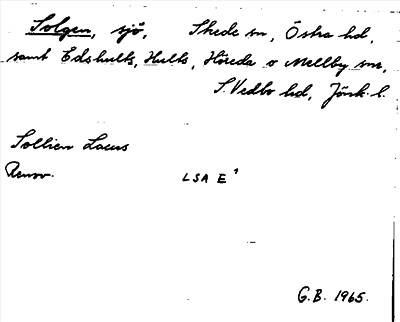 Solgen, sjö, Skede sn, Östra hd,
samt Edshults, Hults, Höreda o Mellby snr,
S. Vedbo hd, Jönk. l.
Sollien Lacus
Renov. LSA E¹
G.B. 1965.